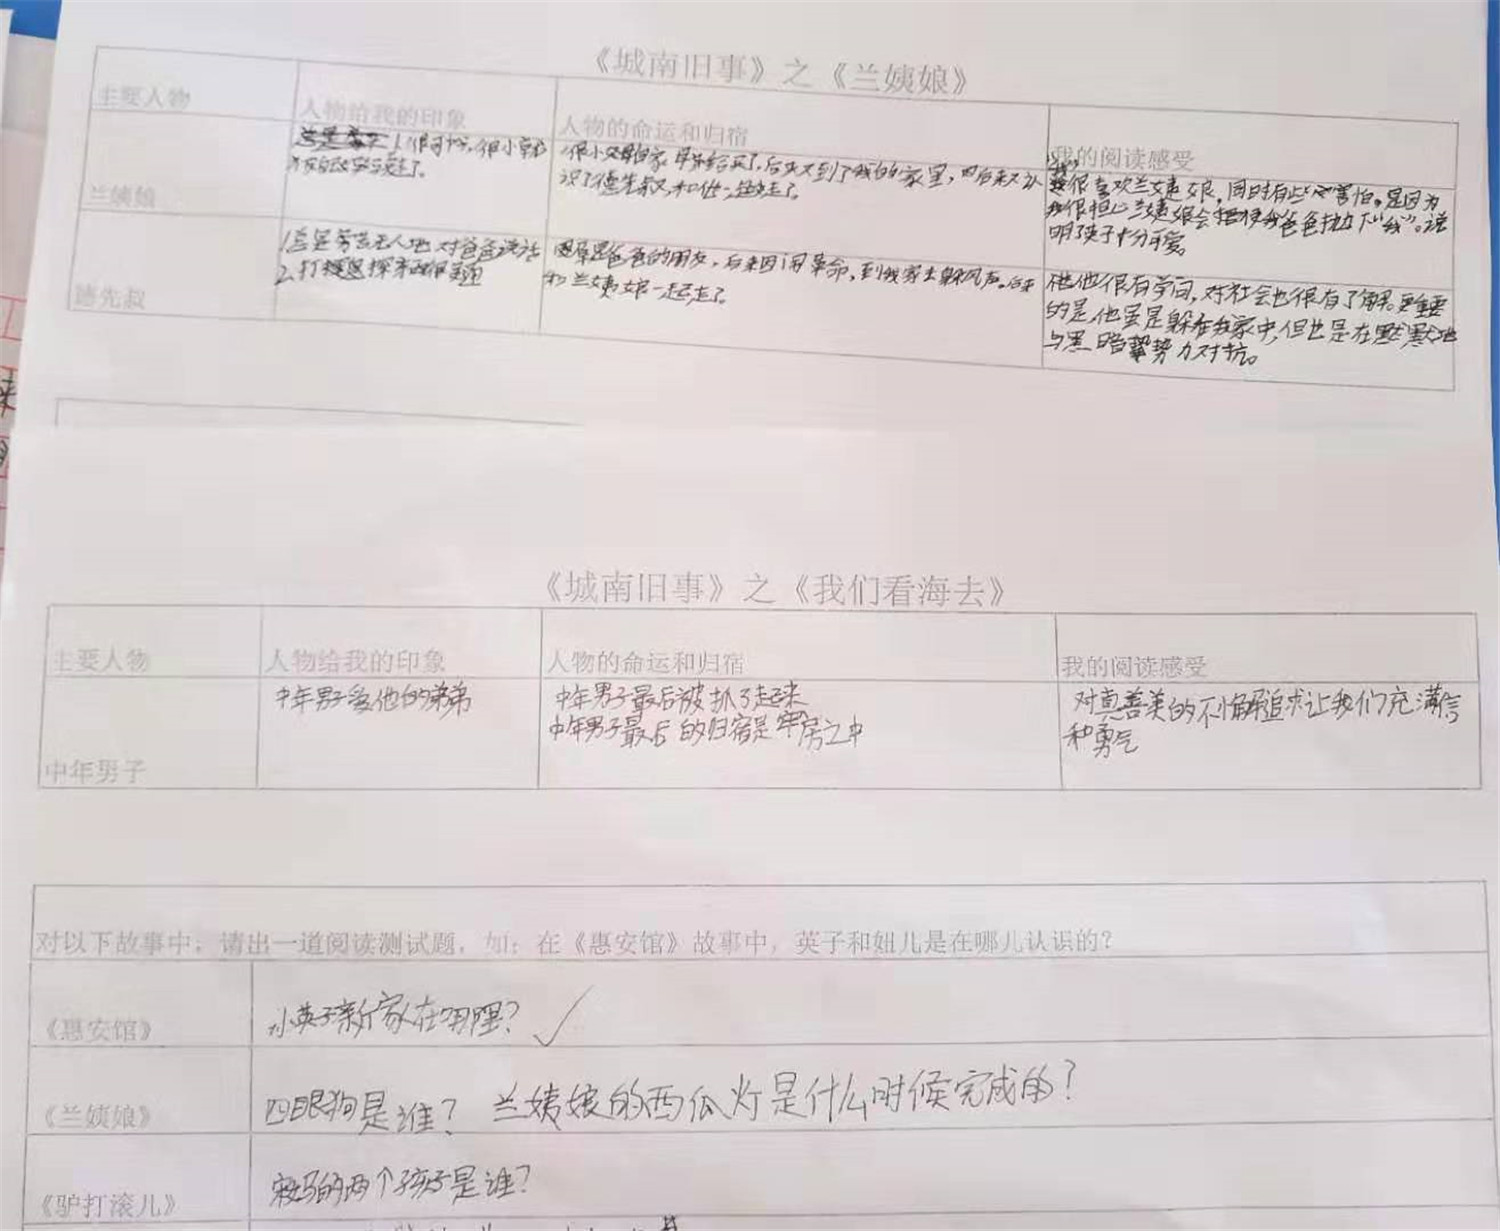 《城南旧事》之《兰姨娘》
主要人物
人物给我的印象
人物的命运和归宿
我的阅读感受
兰姨娘
1.很可怜,很小就
了。
很小父母
家里,后来又认
识了德先叔,和他一起走了。
很喜欢兰姨娘,同时有些害怕。是因为
我很担心兰姨娘会把我爸爸抛下“我”。说
明了英子十分可爱。
德先叔
1.总是旁若无人地对爸爸说话
2.打
是爸爸的朋友,后来因闹革命,到我家去躲风声。后来
和兰姨娘一起走了。
他很有学问,对社会也很有了解。更重要
的是,他虽是躲在我家中,但也是在默默地
与黑暗势力对抗。
《城南旧事》之《我们看海去》
主要人物
人物给我的印象
人物的命运和归宿
我的阅读感受
中年男子
中年男子爱他的弟弟
中年男子最后被抓了起来
中年男子最后的归宿是牢房之中
对真善美的不懈追求让我们充满信
和勇气
对以下故事中,请出一道阅读测试题,如:在《惠安馆》故事中,英子和妞儿是在哪儿认识的?
《惠安馆》
小英子新家在哪里?
《兰姨娘》
四眼狗是谁? 兰姨娘的西瓜灯是什么时候完成的?
《驴打滚儿》
宋妈的两个孩子是谁?